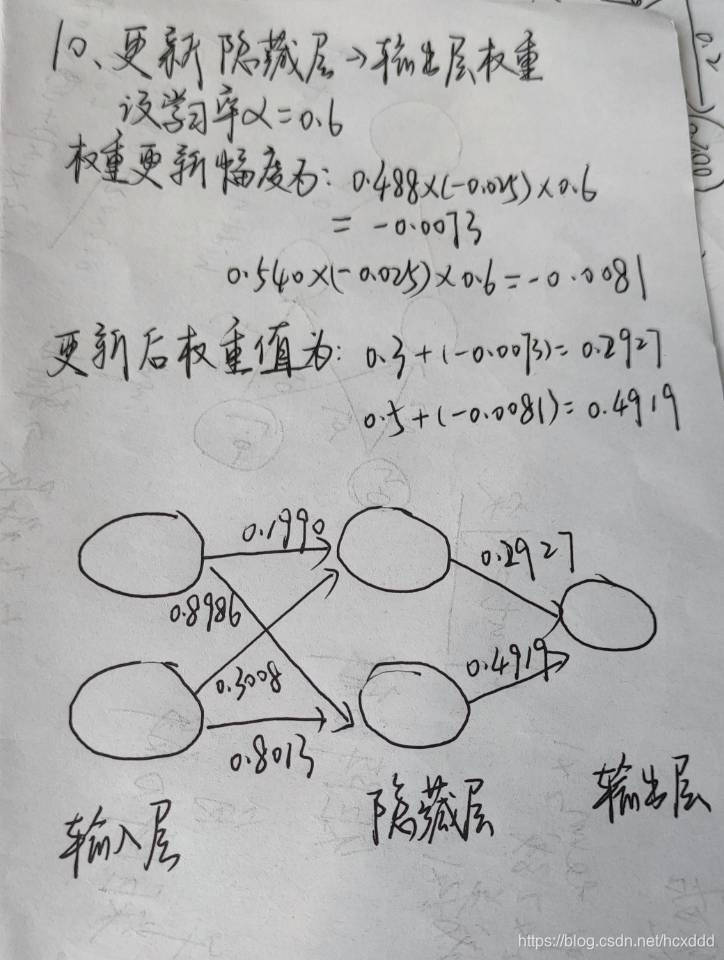 10、更新隐藏层→输出层权重
设学习率α=0.6
权重更新幅度为: 0.488×(-0.025)×0.6
= -0.0073
0.540×(-0.025)×0.6=-0.0081
更新后权重值为: 0.3+(-0.0073)=0.2927
0.5+(-0.0081)=0.4919
0.1990
0.2927
0.8986
0.3008
0.4919
0.8013
输入层
隐藏层
输出层
https://blog.csdn.net/hcxddd